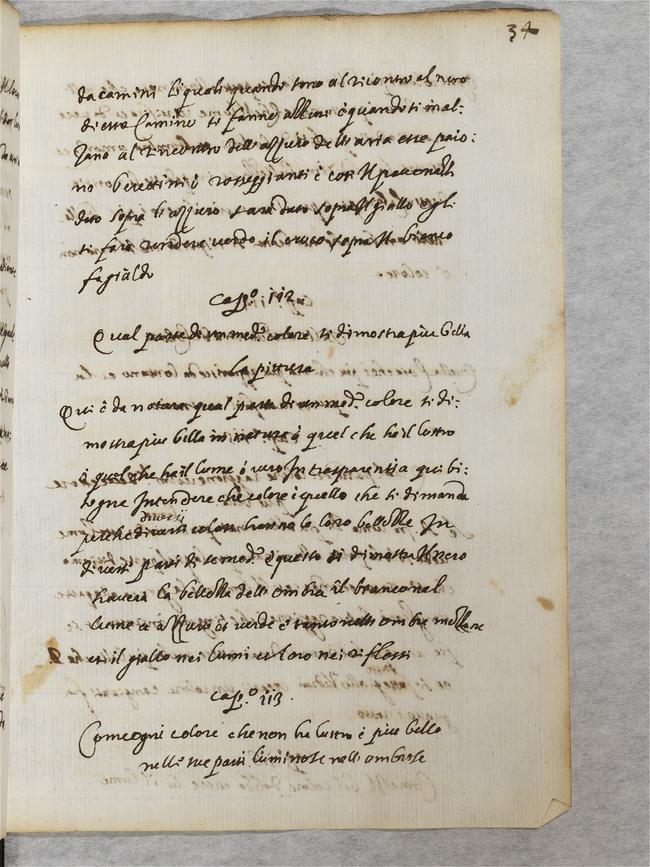 34
da camini li quali quando sono al riscontro al nero
di esso Camino si fanno azzuri è quando si inal:
zano al Incontro dell'azzuro dell'aria esse paio:
no berettini ò rosseggianti è cosi Il pavonazzo
dato sopra l'azzuro
sopra Il giallo egli
si farà rendere verdo il croco sopra Il bianco
fa gialdo
Cap.º 112
Qual parte di un med.º colore si dimostra piu bella
La pittura
Qui è da notare qual parte di un med.º colore si di:
mostra piu bella in natura ò quel che ha il lustro
ò quel che ha il lume ò vero In trasparentia qui bi:
sogna Intendere che colore è quello che si dimanda
perche diversi colori hanno le loro bellezze In
diversi
diverse parti di se med.º è questo si dimostra Il nero
haver la bellezza nell'ombra il bianco nel
lume
azzuro
verde
nell'ombre mezzane
et il giallo nei lumi et loro nei riflessi
Cap.º 113
Come ogni colore che non ha lustro è piu bello
nelle sue parti luminose nell'ombrose